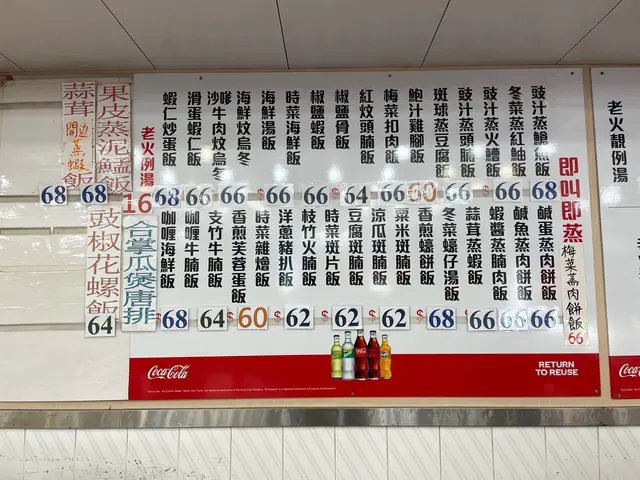 即叫即蒸
梅菜蒸肉餅飯
66
豉汁蒸鯧魚飯
冬菜蒸紅鮋飯
豉汁蒸火鱔飯
豉汁蒸頭腩飯
斑球蒸豆腐飯
鮑汁雞腳飯
梅菜扣肉飯
紅炆頭腩飯
椒鹽骨飯
椒鹽蝦飯
時菜海鮮飯
海鮮湯飯
海鮮炆烏冬
沙嗲牛肉炆烏冬
滑蛋蝦仁飯
蝦仁炒蛋飯
68 66 66 $66 $66 64 66 60 66 66 68
鹹蛋蒸肉餅飯
鹹魚蒸肉餅飯
蝦醬蒸腩飯
蒜茸蒸蝦飯
冬菜蠔仔湯飯
香煎蠔餅飯
粟米斑腩飯
涼瓜斑腩飯
豆腐斑腩飯
時菜斑片飯
枝竹火腩飯
洋蔥豬扒飯
時菜雜燴飯
香煎芙蓉蛋飯
支竹牛腩飯
咖喱牛腩飯
咖喱海鮮飯
$68 64 $60 $62 $62 $62 $68 66 66 66
老火例湯
16
合掌瓜煲唐排
果皮蒸泥鯭飯
68
蒜茸
開邊蒸蝦飯
68
豉椒花螺飯
64
老火靚湯
Coca-Cola
RETURN
TO REUSE